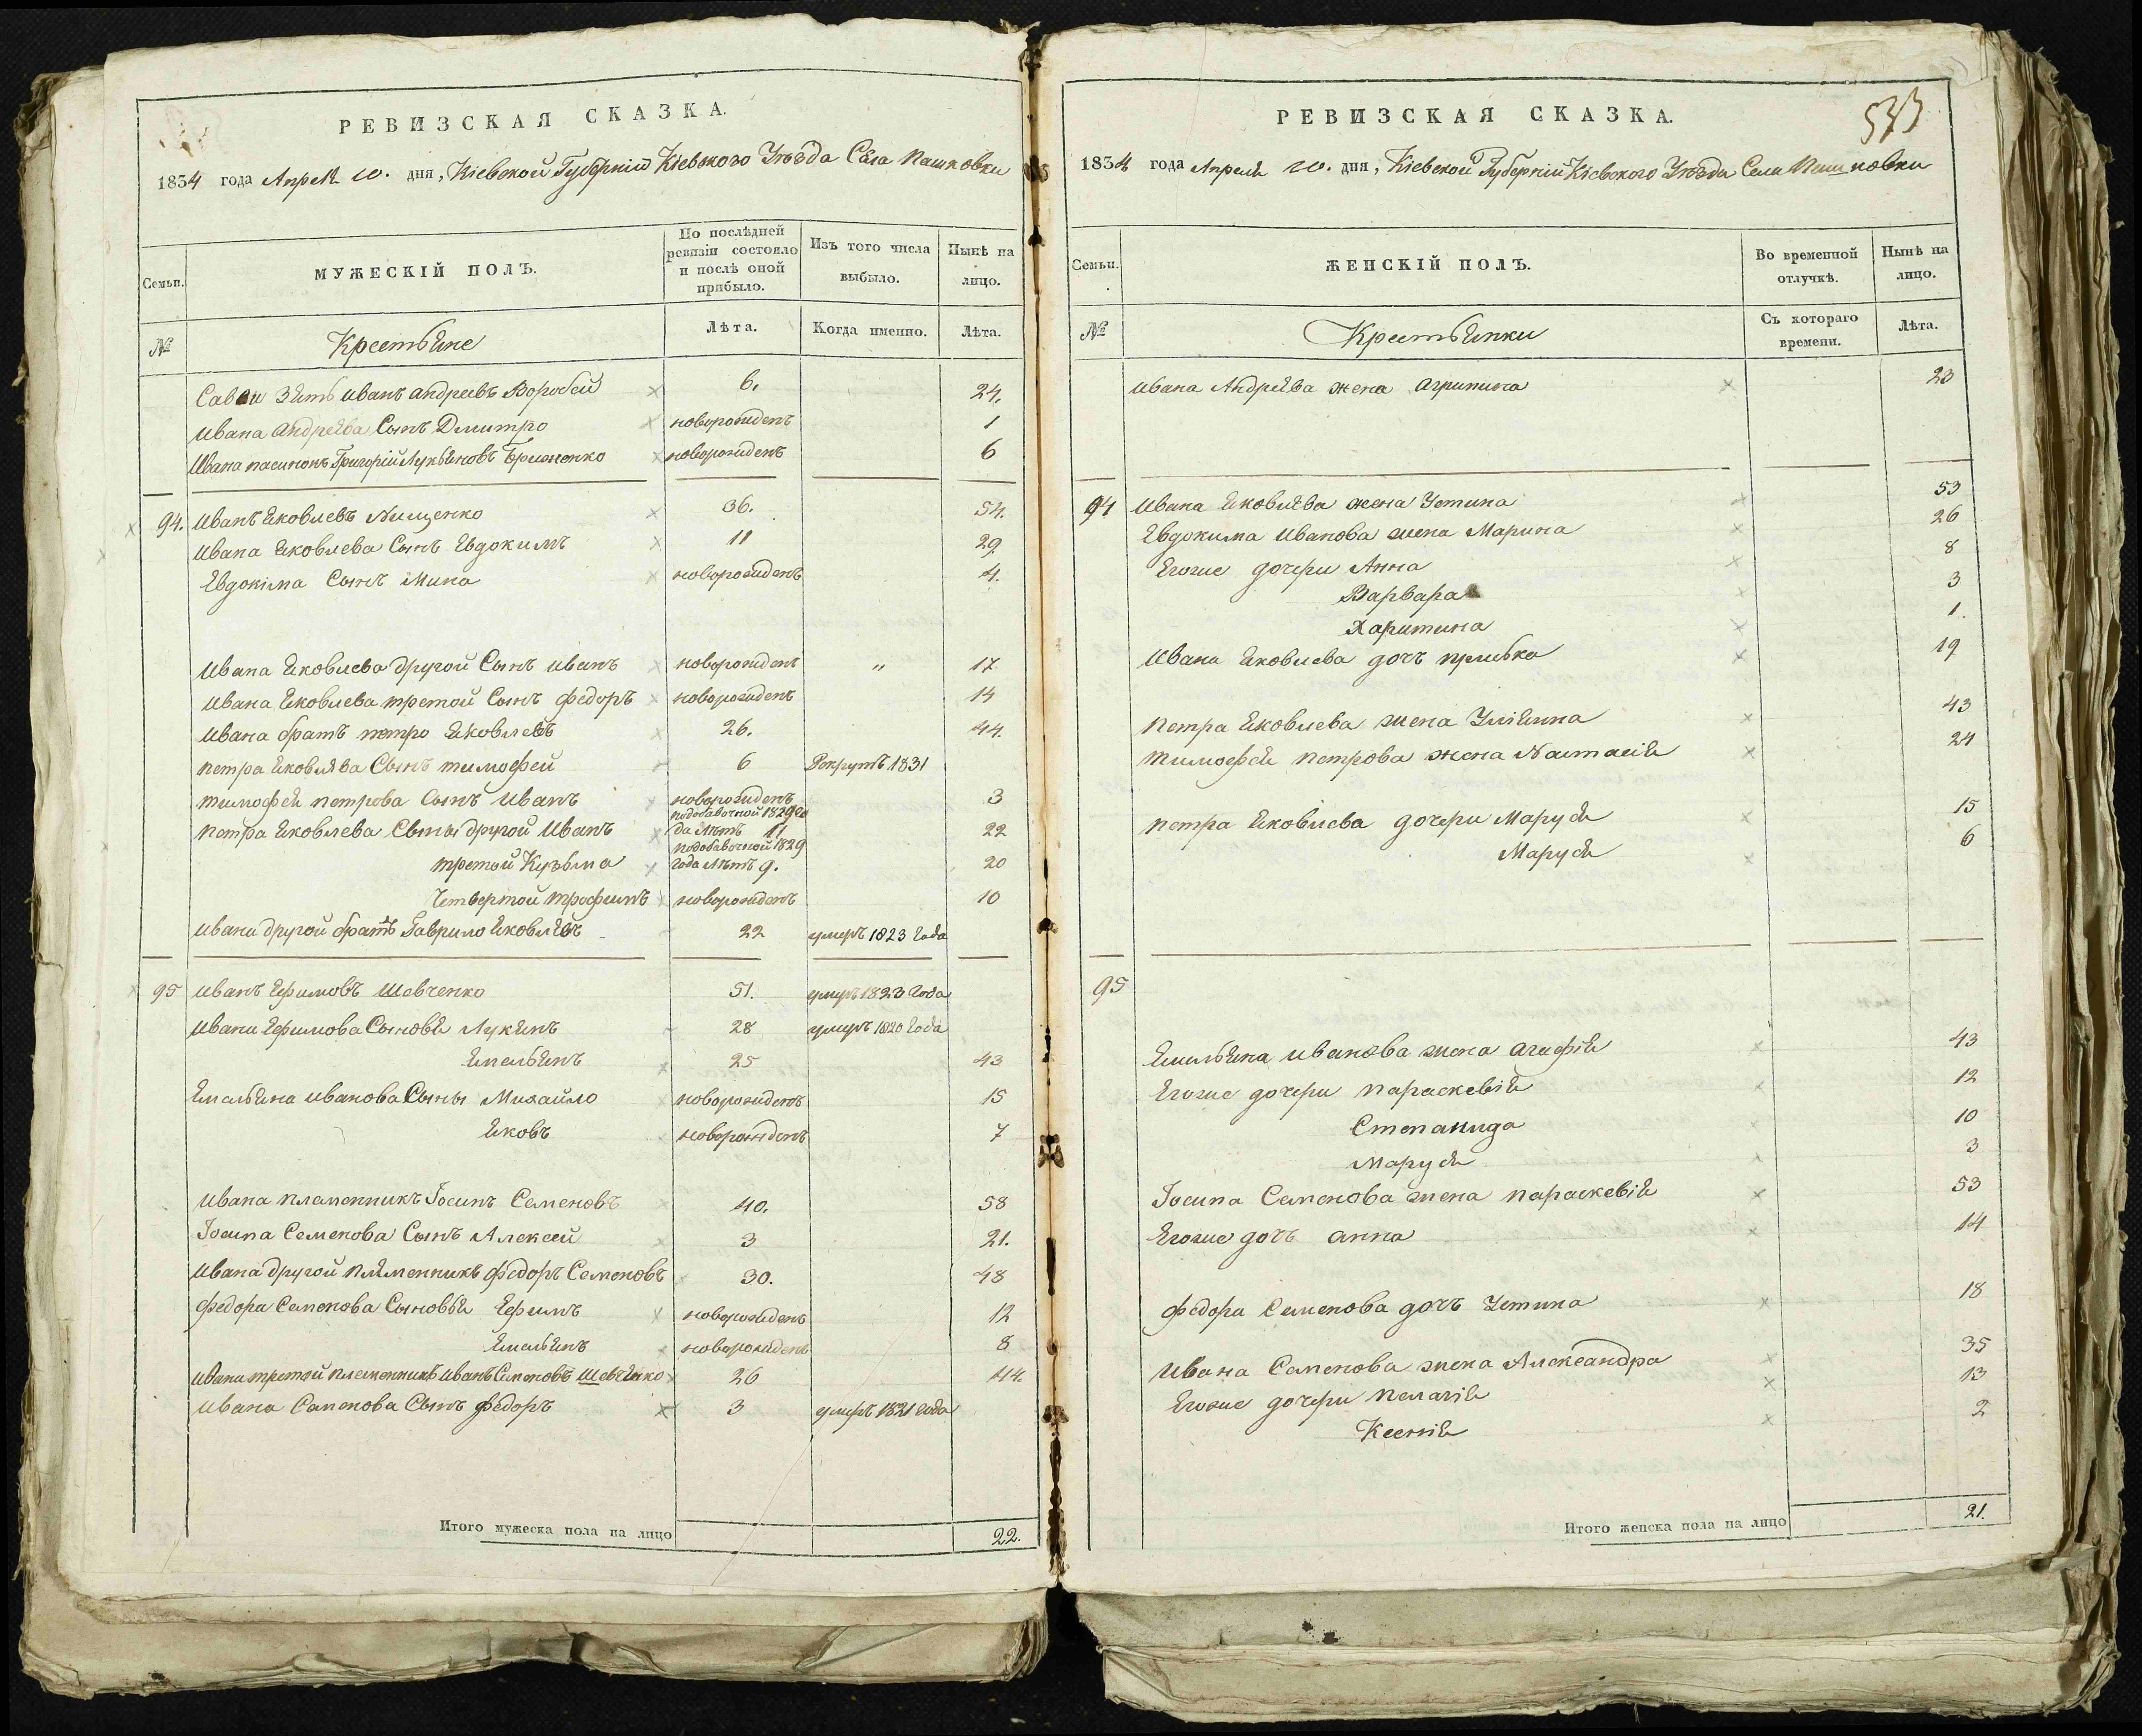 РЕВИЗСКАЯ СКАЗКА.
1834 года Апреля 10. дня, Кіевской Губерніи Кіевского Уѣзда Села Пашковки
Семьи.
МУЖЕСКІЙ ПОЛЪ.
По послѣдней ревизіи состояло и послѣ оной прибыло.
Изъ того числа выбыло.
Нынѣ на лицо.
№
Крестьяне
Лѣта.
Когда именно.
Лѣта.
Савви Зять иванъ андреевъ Воробей 6. 24.
ивана андреева Сынъ Дмитро новорожденъ 1
Ивана пасинокъ Григорій Лукьяновъ новорожденъ 6
94. иванъ яковлевъ Нищенко 36. 54.
ивана яковлева Сынъ Евдокимъ 11 29.
Евдокіма Сынъ Мина новорожденъ 4.
ивана яковлева другой Сынъ иванъ новорожденъ " 17
ивана яковлева третой Сынъ федоръ новорожденъ 14
ивана братъ петро яковлевъ 26. 44.
петра яковлева Сынъ тимофей 6 Рекрутъ 1831
тимофея петрова Сынъ иванъ новорожденъ 3
петра яковлева Сыны другой иванъ подобавочной 1829 года лѣтъ 17 22
третой Кузьма подобавочной 1829 года лѣтъ 9. 20
Четвертой трофимъ новорожденъ 10
ивана другой братъ Гаврило яковлевъ 22 умеръ 1823 года
95 иванъ Ефимовъ Шевченко 51. умеръ 1823 года
ивана Ефимова Сыновья Лукянъ 28 умеръ 1820 года
Емельянъ 25 43
Емельяна иванова Сыны Михайло новорожденъ 15
яковъ новорожденъ 7
ивана племенникъ Іосипъ Семеновъ 40. 58
Іосипа Семенова Сынъ Алексей 3 21.
ивана другой племенникъ федоръ Семеновъ 30. 48
федора Семенова Сыновья Ефимъ новорожденъ 12
Емельянъ новорожденъ 8
ивана третой племенникъ иванъ Семеновъ Шевченко 26 44
ивана Семенова Сынъ федоръ 3 умеръ 1821 года
Итого мужеска пола на лицо 22.
РЕВИЗСКАЯ СКАЗКА.
1834 года Апреля 10. дня, Кіевской Губерніи Кіевского Уѣзда Села Пашковки
Семьи.
ЖЕНСКІЙ ПОЛЪ.
Во временной отлучкѣ.
Нынѣ на лицо.
№
Крестьянки
Съ котораго времени.
Лѣта.
ивана Андреева жена агрипина 23
94 ивана яковлева жена Устина 53
Евдокима иванова жена Марина 26
Егоже дочери Анна 8
Варвара 3
Харитина 1.
ивана яковлева дочъ 19
петра яковлева жена Уліянна 43
тимофея петрова жена Настасія 24
петра яковлева дочери Маруся 15
Маруся 6
95
Емельяна иванова жена агафія 43
Егоже дочери параскевія 12
Степанида 10
Маруся 3
Іосипа Семенова жена параскевія 53
Егоже дочъ анна 14
федора Семенова дочъ Устина 18
ивана Семенова жена Александра 35
Егоже дочери пелагія 13
Ксенія 2
Итого женска пола на лицо 21.